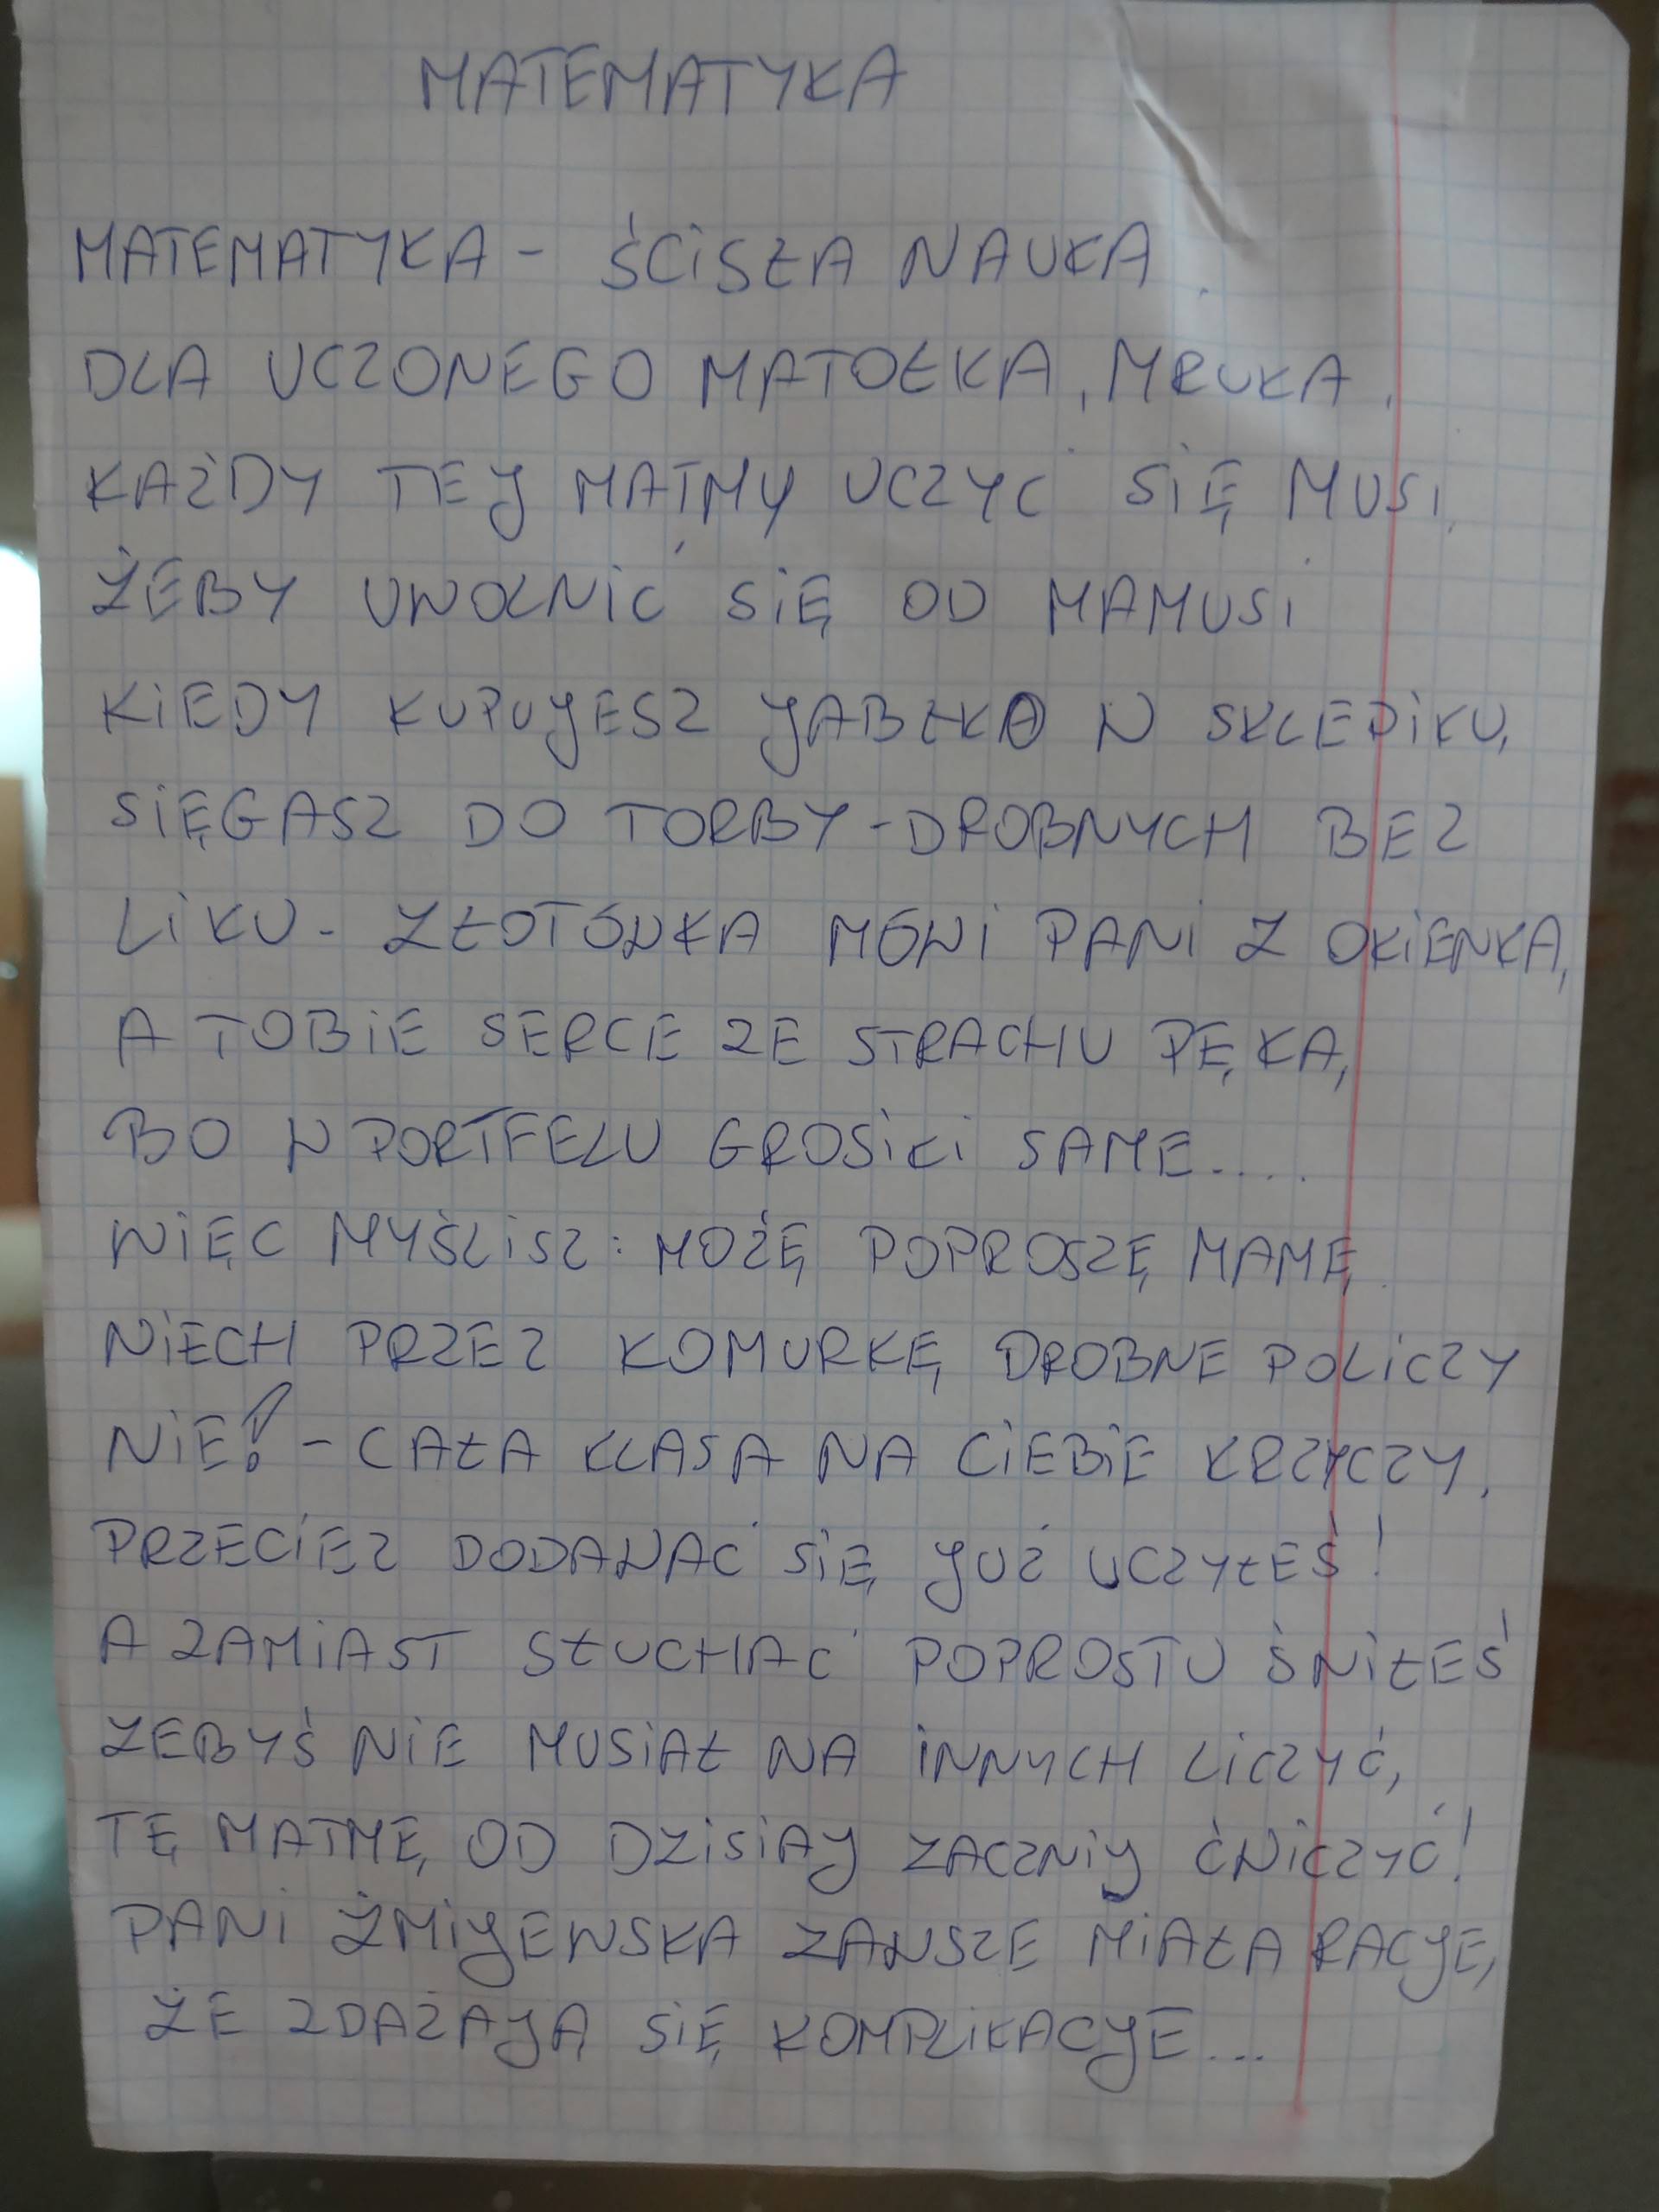 MATEMATYKA
MATEMATYKA - ŚCISŁA NAUKA
DLA UCZONEGO MATOŁKA, MRUKA.
KAŻDY TEJ MATMY UCZYĆ SIĘ MUSI,
ŻEBY UWOLNIĆ SIĘ OD MAMUSI
KIEDY KUPUJESZ JABŁKO W SKLEPIKU,
SIĘGASZ DO TORBY - DROBNYCH BEZ
LIKU - ZŁOTÓWKA MÓWI PANI Z OKIENKA,
A TOBIE SERCE ZE STRACHU PĘKA,
BO W PORTFELU GROSIKI SAME....
WIĘC MYŚLISZ: MOŻĘ POPROSZĘ MAMĘ
NIECH PRZEZ KOMURKĘ DROBNE POLICZY
NIE! - CAŁA KLASA NA CIEBIE KRZYCZY.
PRZECIEZ DODAWAĆ SIĘ JUŻ UCZYŁEŚ!
A ZAMIAST SŁUCHAĆ POPROSTU ŚNIŁEŚ
ŻEBYŚ NIE MUSIAŁ NA INNYCH LICZYĆ,
TĘ MATMĘ OD DZISIAJ ZACZNIJ ĆWICZYĆ!
PANI ŻMIJEWSKA ZAWSZE MIAŁA RACJĘ,
ŻE ZDAŻAJĄ SIĘ KOMPLIKACJE...